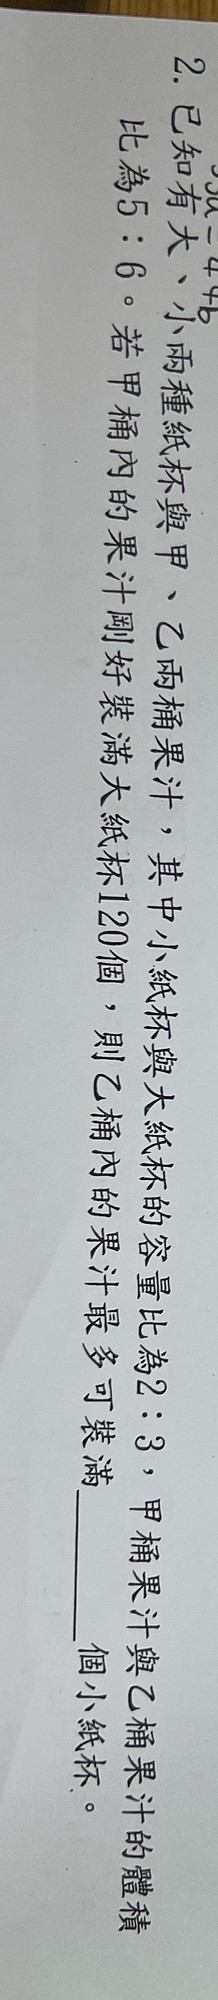 2. 已知有大、小兩種紙杯與甲、乙兩桶果汁，其中小紙杯與大紙杯的容量比為2：3，甲桶果汁與乙桶果汁的體積
比為5：6。若甲桶內的果汁剛好裝滿大紙杯120個，則乙桶內的果汁最多可裝滿______個小紙杯。